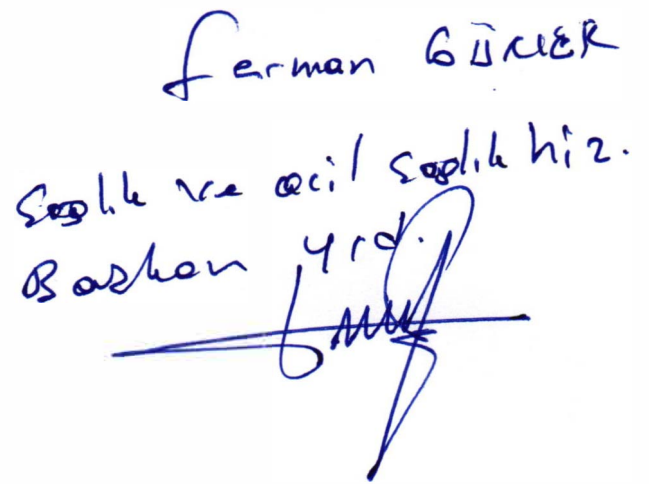 Ferman GÜNER
Sağlık ve acil sağlık hiz.
Başkan yrd.